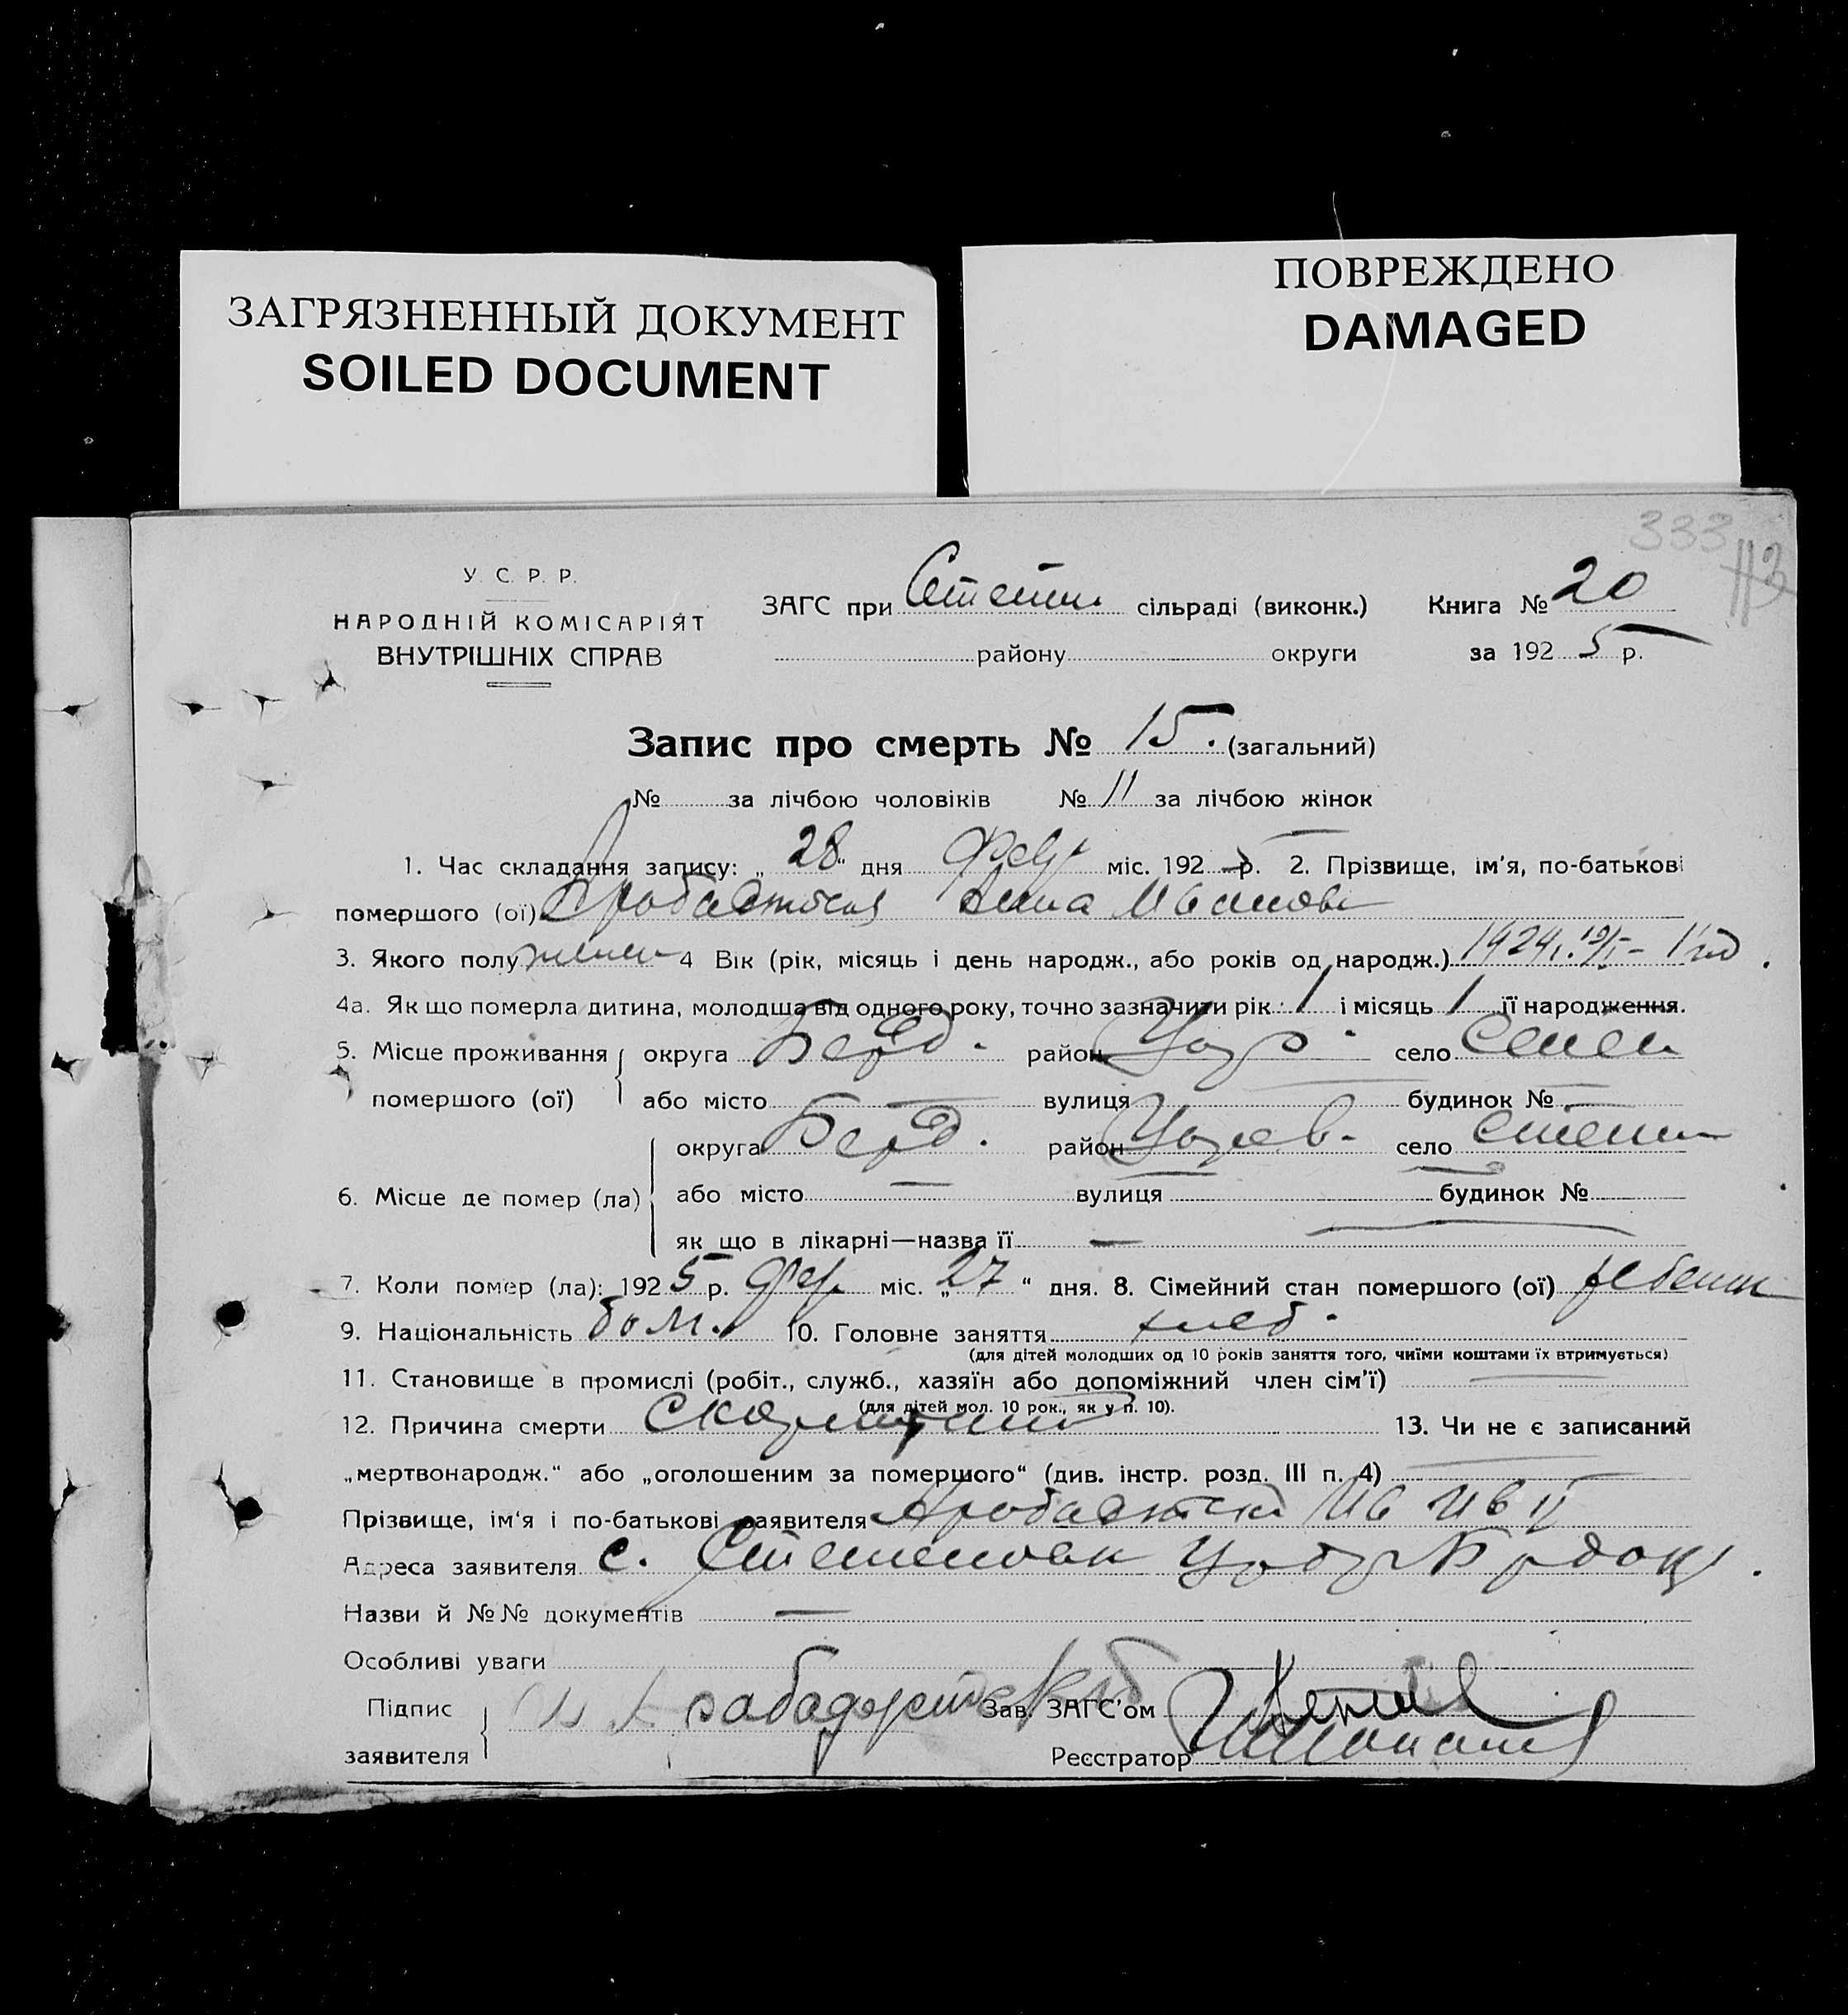 ЗАГРЯЗНЕННЫЙ ДОКУМЕНТ
SOILED DOCUMENT
ПОВРЕЖДЕНО
DAMAGED
333
113
У. С. Р. Р.
НАРОДНІЙ КОМІСАРІЯТ
ВНУТРІШНІХ СПРАВ
ЗАГС при сільраді (виконк.)
району округи
Книга № 20
за 1925 р.
Запис про смерть № 15. (загальний)
№ за лічбою чоловіків № 11 за лічбою жінок
1. Час складання запису: „ 28 “ дня февр міс. 192 р. 2. Прізвище, ім'я, по-батькові
помершого (ої) Анна Иванов
3. Якого полу женск 4 Вік (рік, місяць і день народж., або років од народж.) 1924 1 год.
4а. Як що померла дитина, молодша від одного року, точно зазначити рік 1 і місяць 1 її народження.
5. Місце проживання помершого (ої) округа Берд. район Цар. село
або місто вулиця будинок №
6. Місце де помер (ла) округа Берд. район Царев. село
або місто — вулиця будинок №
як що в лікарні—назва її —
7. Коли помер (ла): 1925 р. фев. міс. „ 27 “ дня. 8. Сімейний стан помершого (ої) ребенок
9. Національність бол. 10. Головне заняття хлеб.
(для дітей молодших од 10 років заняття того, чиїми коштами їх втримується)
11. Становище в промислі (робіт., служб., хазяїн або допоміжний член сім'ї)
(для дітей мол. 10 рок., як у п. 10).
12. Причина смерти Скарлатина 13. Чи не є записаний
„мертвонародж.“ або „оголошеним за помершого“ (див. інстр. розд. III п. 4)
Прізвище, ім'я і по-батькові заявителя Ив Ив
Адреса заявителя с.
Назви й №№ документів —
Особливі уваги
Підпис заявителя
Зав. ЗАГС'ом
Реєстратор